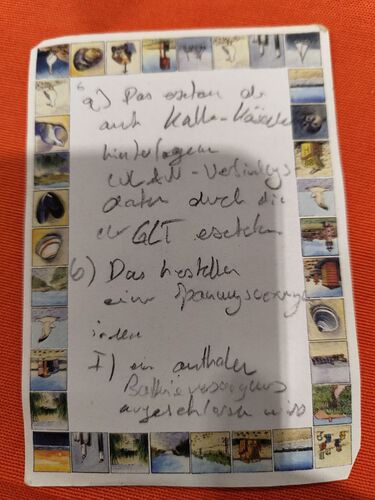 a) Das ersetzen de
auf Kalle-Käse
hinterlegen
WLAN-Verbindungs
daten durch die
der GLT ersetzen
b) Das herstellen
einer Spannungsversorgung
indem
I) ein
Batterieversorgung
angeschlossen wird